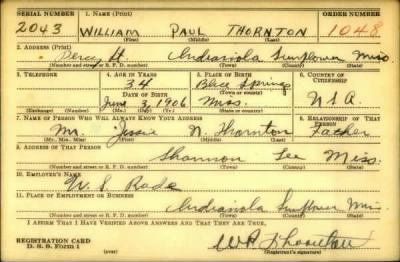 SERIAL NUMBER 1. NAME (Print) ORDER NUMBER
2043 WILLIAM PAUL THORNTON 1048
(First) (Middle) (Last)
2. ADDRESS (Print)
Percy St Indianola Sunflower Miss
(Number and street or R. F. D. number) (Town) (County) (State)
3. TELEPHONE 4. AGE IN YEARS 5. PLACE OF BIRTH 6. COUNTRY OF CITIZENSHIP
34 Blue Springs
DATE OF BIRTH (Town or county)
June 3, 1906 Miss. USA
(Exchange) (Number) (Mo.) (Day) (Yr.) (State or country)
7. NAME OF PERSON WHO WILL ALWAYS KNOW YOUR ADDRESS 8. RELATIONSHIP OF THAT PERSON
Mr. Jessie N. Thornton Father
(Mr., Mrs., Miss) (First) (Middle) (Last)
9. ADDRESS OF THAT PERSON
Shannon Lee Miss.
(Number and street or R. F. D. number) (Town) (County) (State)
10. EMPLOYER'S NAME
W. S.
11. PLACE OF EMPLOYMENT OR BUSINESS
Indianola Sunflower Miss.
(Number and street or R. F. D. number) (Town) (County) (State)
I AFFIRM THAT I HAVE VERIFIED ABOVE ANSWERS AND THAT THEY ARE TRUE.
REGISTRATION CARD
D. S. S. Form 1 W P Thornton
(Registrant's signature)